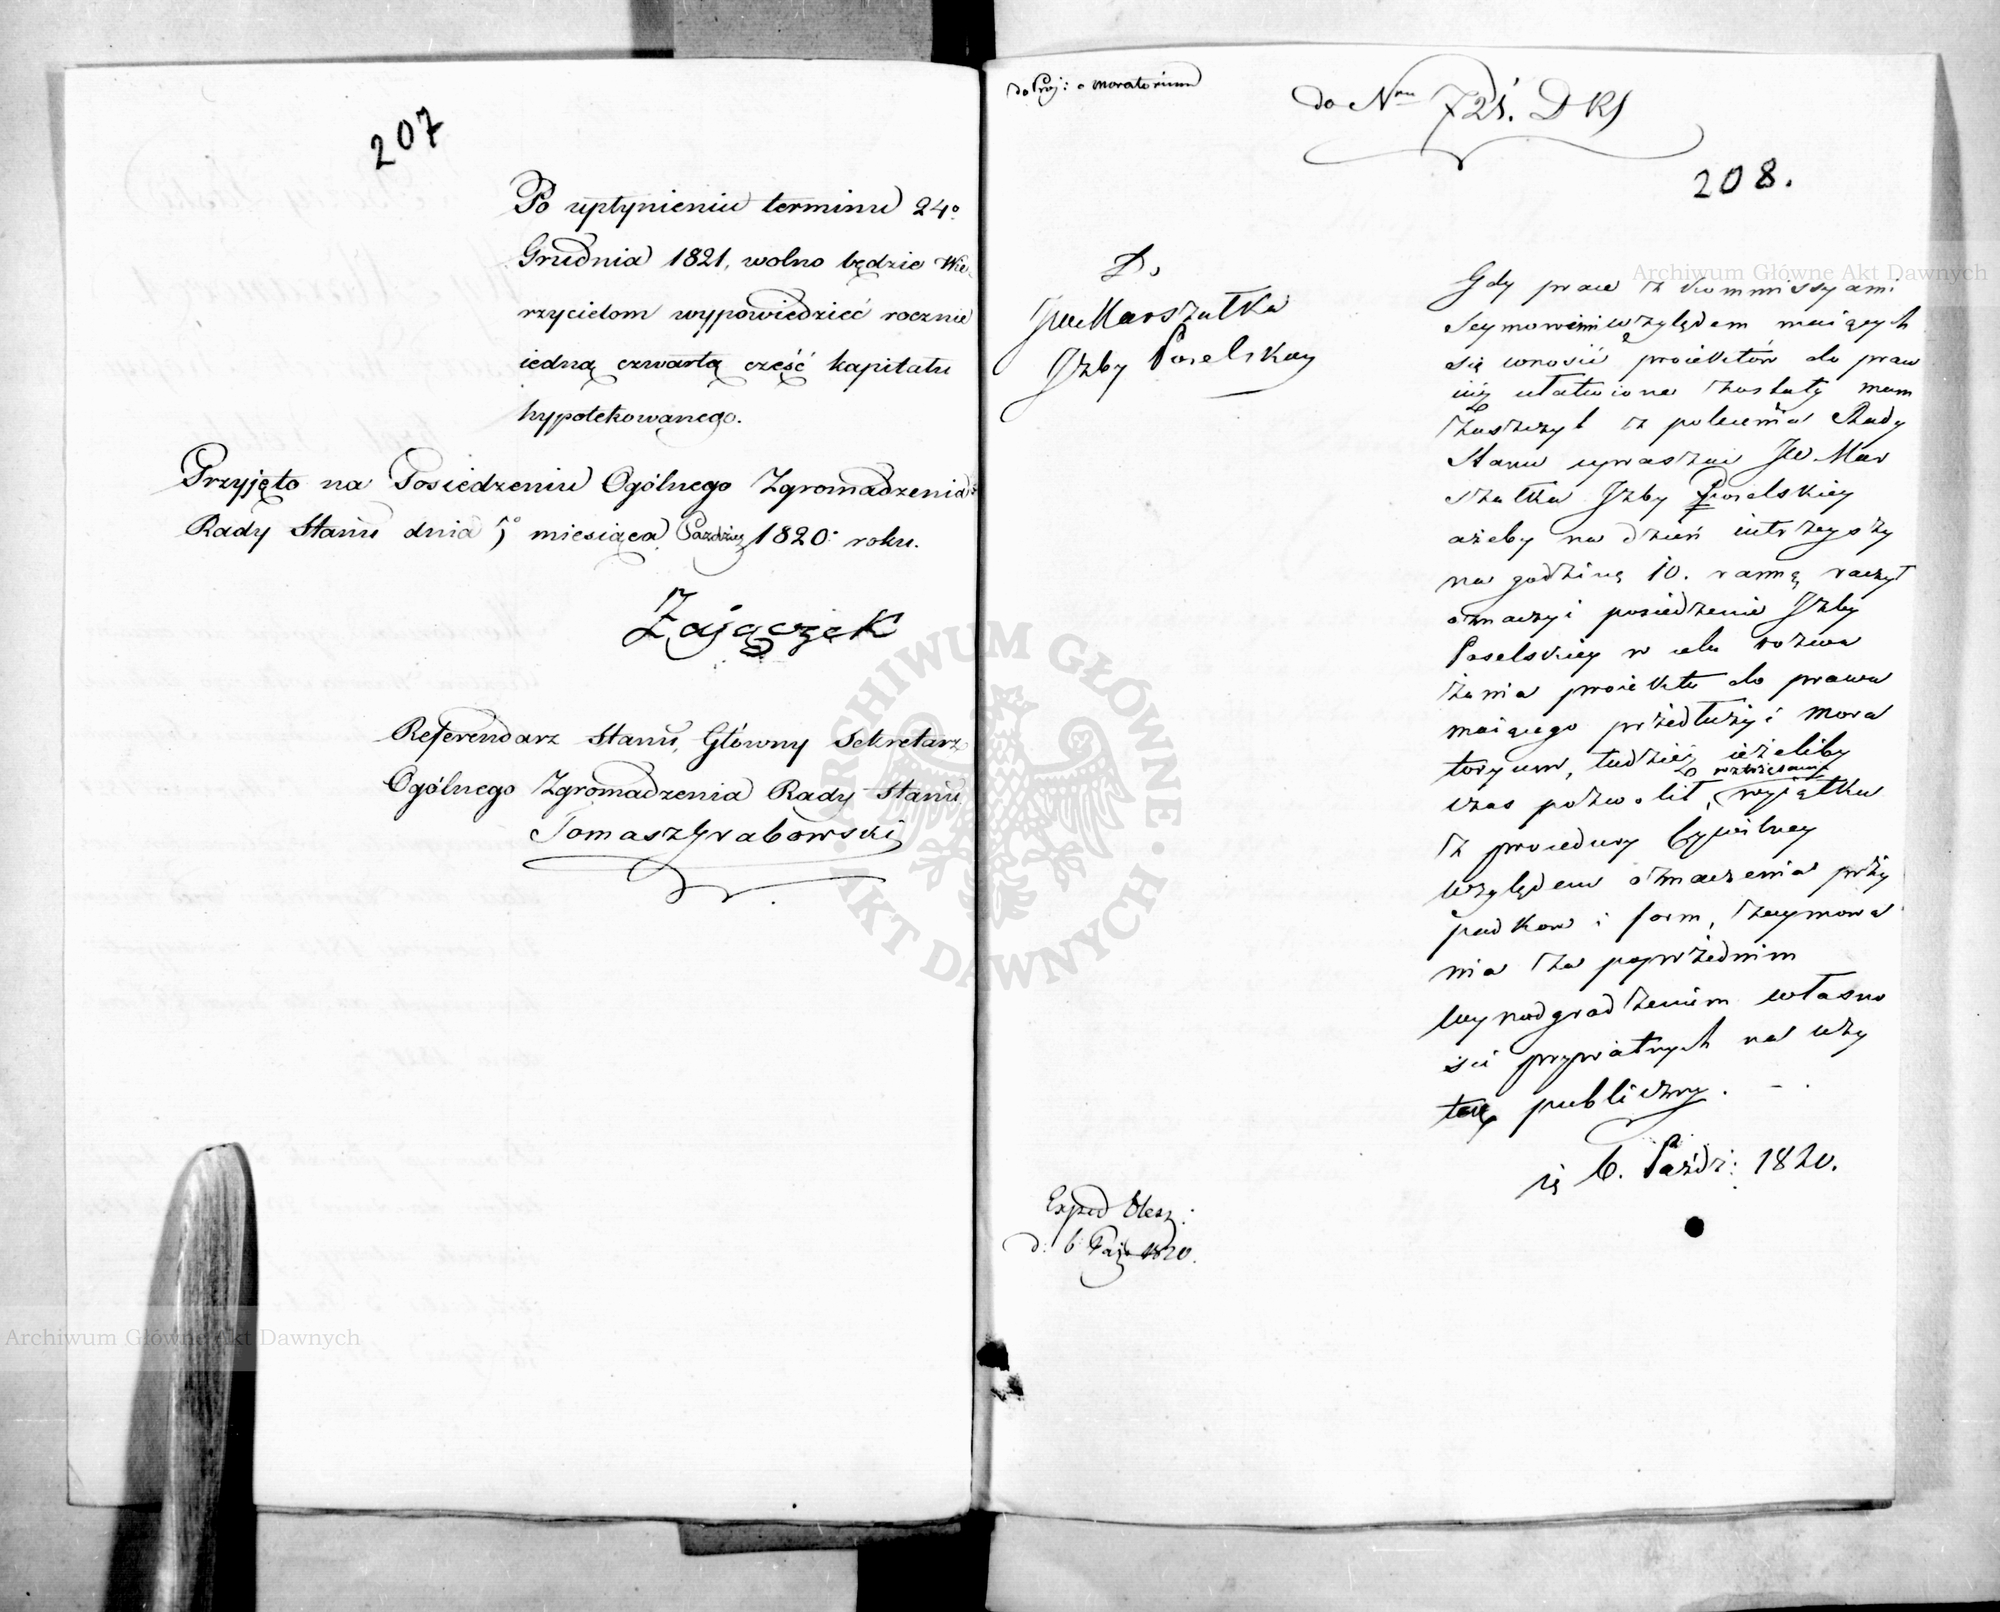 207
Po upłynieniu terminu 24º
Grudnia 1821, wolno będzie Wie-
rzycielom wypowiedzieć rocznie
iedną czwartą część kapitału
hypotekowanego.
Przyjęto na Posiedzeniu Ogólnego Zgromadzenia
Rady Stanu dnia 5º miesiąca Paździer 1820 roku.
Zajączek
Referendarz Stanu, Główny Sekretarz
Ogólnego Zgromadzenia Rady Stanu
Tomasz Grabowski
do Proj: o moratorium
do Nru 721. D R S
208.
Do
JW Marszałka
Izby Poselskiey
Gdy prace z Kommissyami
Seymowemi względem maiących
się wnosić proiektów do praw
iuż ułatwione zostały mam
zaszczyt z polecenia Rady
Stanu upraszać JW Mar
szałka Izby Poselskiey
ażeby na dzień iutrzeyszy
na godzinę 10. ranną raczył
oznaczyć posiedzenie Izby
Poselskiey w celu rozwa
żania proiektu do prawa
maiącego przedłużyć mora
toryum, tudzież ieżeliby
czas pozwolił, roztrząsania wyiątku
z procedury Cywilney
względem oznaczenia przy
padkow i form, zaymowa
nia za poprzedniem
wynadgrodzeniem własno
ści prywatnych na uży
tek publiczny.
6. Paźdz: 1820.
Exped
d: 6 Paź 1820.
Archiwum Główne Akt Dawnych
Archiwum Główne Akt Dawnych
ARCHIWUM GŁÓWNE AKT DAWNYCH